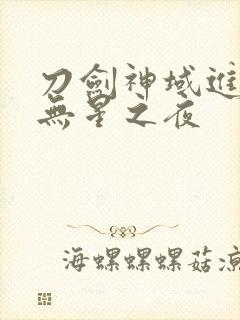 刀劍神域進
無星之夜
海螺螺螺菇涼